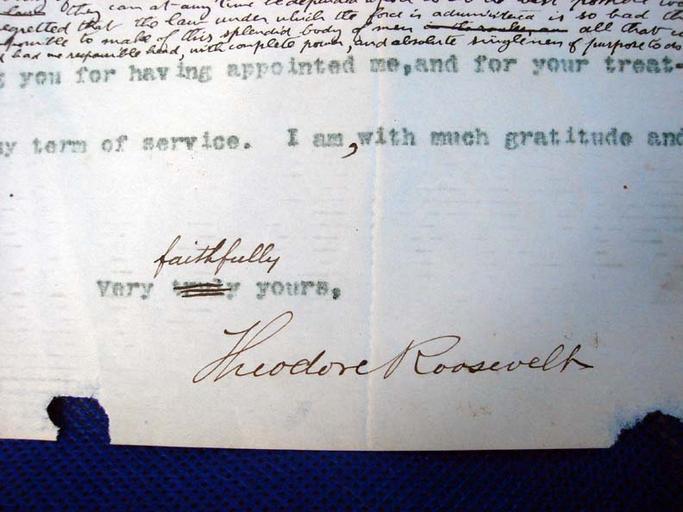 they can at any time
regretted that the law under which the force is administered is so bad th
to make of this splendid body of men all that
had no responsible head, with complete power, and absolute singleness of purpose to do
g you for having appointed me,and for your treat-
my term of service. I am, with much gratitude and
faithfully
Very truly yours,
Theodore Roosevelt